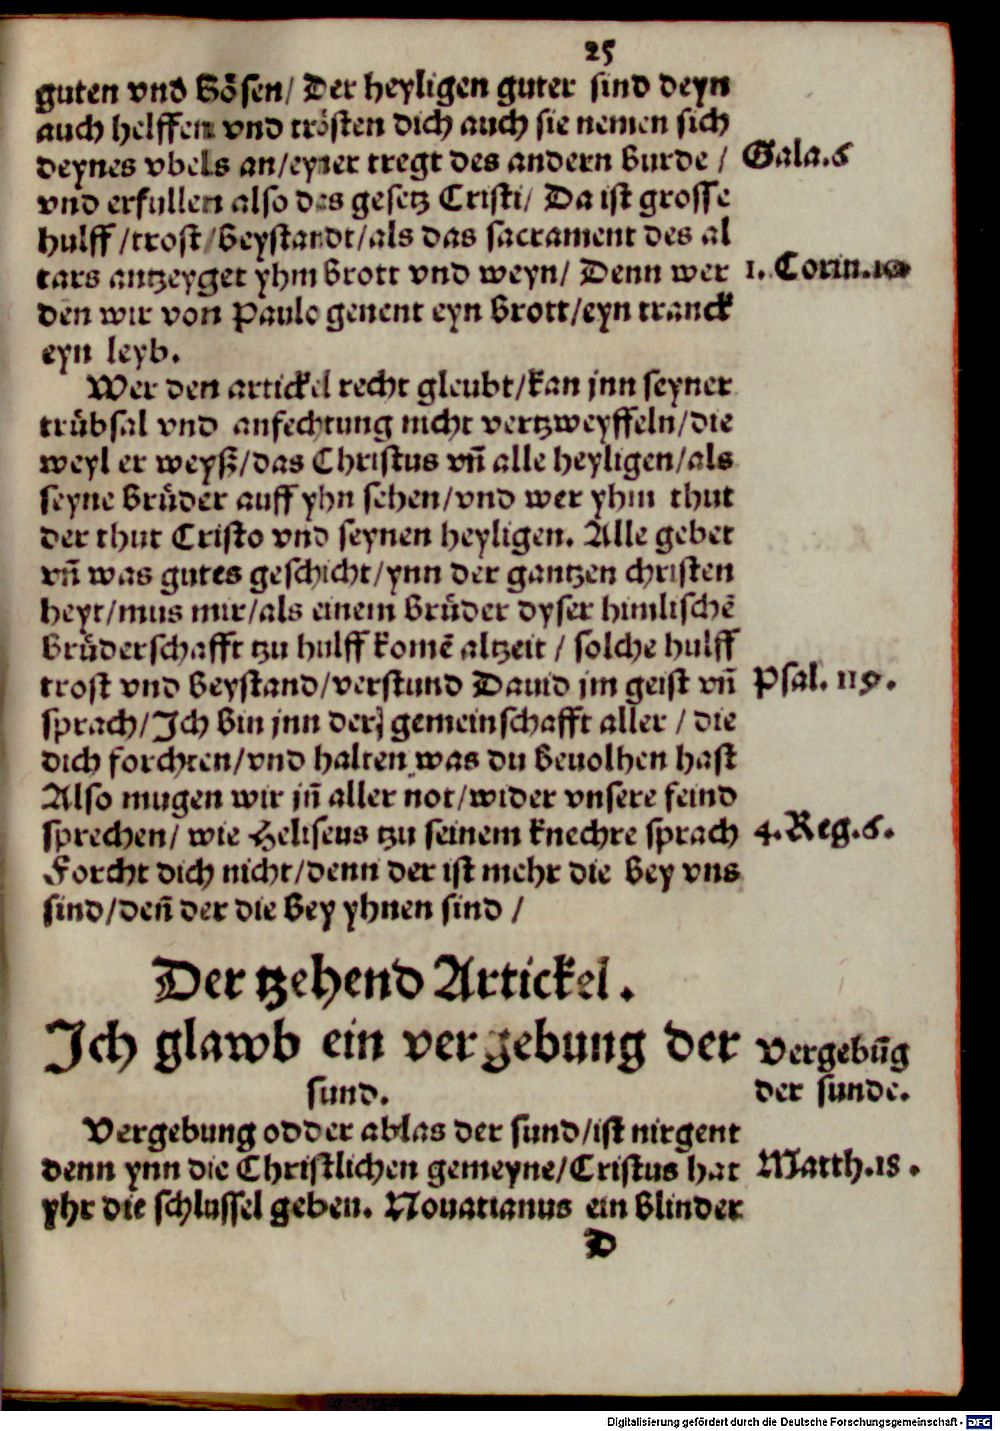 25
guten vnd bösen/ Der heyligen guter sind deyn
auch helffen vnd trösten dich auch sie nemen sich
deynes vbels an/eyner tregt des andern burde /
Gala.6
vnd erfullen also das gesetz Cristi/ Da ist grosse
hulff/trost/beystandt/als das sacrament des al
tars antzeyget yhm brott vnd weyn/ Denn wer
1. Corin.10
den wir von Paulo genent eyn brott/eyn tranck
eyn leyb.
Wer den artickel recht gleubt/kan jnn seyner
trübsal vnd anfechtung nicht vertzweyffeln/die
weyl er weyß/das Christus vñ alle heyligen/als
seyne brüder auff yhn sehen/vnd wer yhm thut
der thut Cristo vnd seynen heyligen. Alle gebet
vñ was gutes geschicht/ynn der gantzen christen
heyt/mus mir/als einem brüder dyser himlischē
brüderschafft tzu hulff komē altzeit / solche hulff
trost vnd beystand/verstund Dauid jm geist vñ
Psal. 119.
sprach/Jch bin jnn der gemeinschafft aller / die
dich forchten/vnd halten was du beuolhen hast
Also mugen wir jñ aller not/wider vnsere feind
sprechen/ wie Heliseus tzu seinem knechte sprach
4.Reg.6.
Forcht dich nicht/denn der ist mehr die bey vns
sind/deñ der die bey yhnen sind /
Der tzehend Artickel.
Jch glawb ein vergebung der
sund.
Vergebūg
der sunde.
Vergebung odder ablas der sund/ist nirgent
denn ynn die Christlichen gemeyne/Cristus hat
Matth.18.
yhr die schlussel geben. Nouatianus ein blinder
D
Digitalisierung gefördert durch die Deutsche Forschungsgemeinschaft - DFG